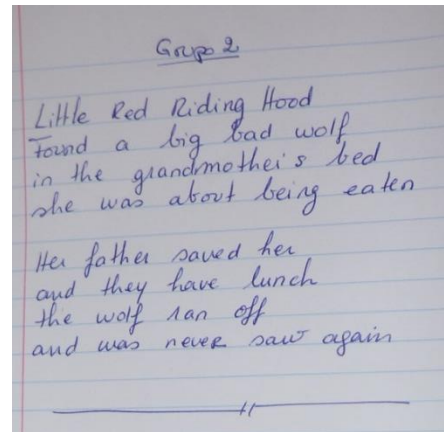 Grupo 2
Little Red Riding Hood
Found a big bad wolf
in the grandmother's bed
she was about being eaten
Her father saved her
and they have lunch
the wolf ran off
and was never saw again